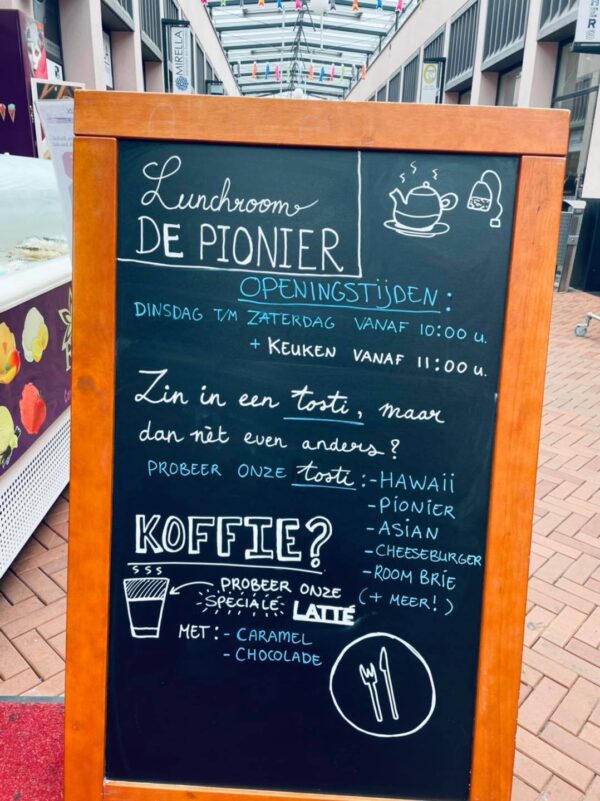 MIRELLA
Lunchroom
DE PIONIER
OPENINGSTIJDEN:
DINSDAG T/M ZATERDAG VANAF 10:00 u.
+ KEUKEN VANAF 11:00 u.
Zin in een tosti, maar
dan nèt even anders?
PROBEER ONZE tosti: -HAWAII
-PIONIER
-ASIAN
-CHEESEBURGER
-ROOM BRIE
(+ MEER!)
KOFFIE?
PROBEER ONZE
SPECIALE LATTÉ
MET: - CARAMEL
- CHOCOLADE